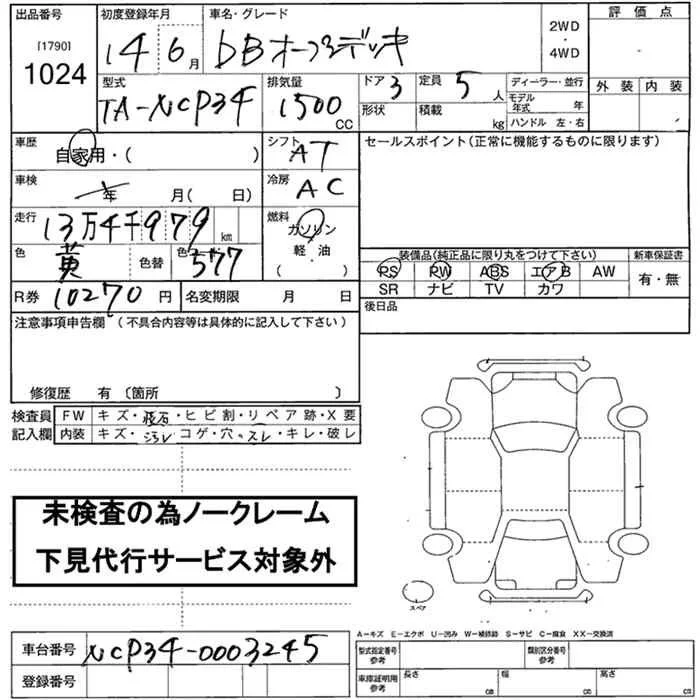 出品番号 初度登録年月 車名・グレード 評価点
[1790]
1024
14 6月 bBオープンデッキ 2WD・4WD
型式 排気量 ドア 3 定員 5人 ディーラー・並行 外装 内装
TA-NCP34 1500CC 形状 積載 kg モデル年式 年
ハンドル 左・右
車歴 自家用・( ) シフト AT セールスポイント(正常に機能するものに限ります)
車検 年 月( 日) 冷房 AC
走行 13万4千979km 燃料 ガソリン
軽・油
( )
色 黄 色替 色 577
装備品(純正品に限り丸をつけて下さい) 新車保証書
PS PW ABS エアB AW 有・無
SR ナビ TV カワ
R券 10270円 名変期限 月 日 後日品
注意事項申告欄(不具合内容等は具体的に記入して下さい)
修復歴 有〔箇所 〕
検査員 FW キズ・飛石・ヒビ割・リペア跡・X要
記入欄 内装 キズ・汚レ・コゲ・穴・スレ・キレ・破レ
未検査の為ノークレーム
下見代行サービス対象外
スペア
A-キズ E-エクボ U-凹み W-補修跡 S-サビ C-腐食 XX-交換済
車台番号 NCP34-0003245 型式指定番号参考 類別区分番号参考
登録番号 車庫証明用参考 長さ cm 幅 cm 高さ cm